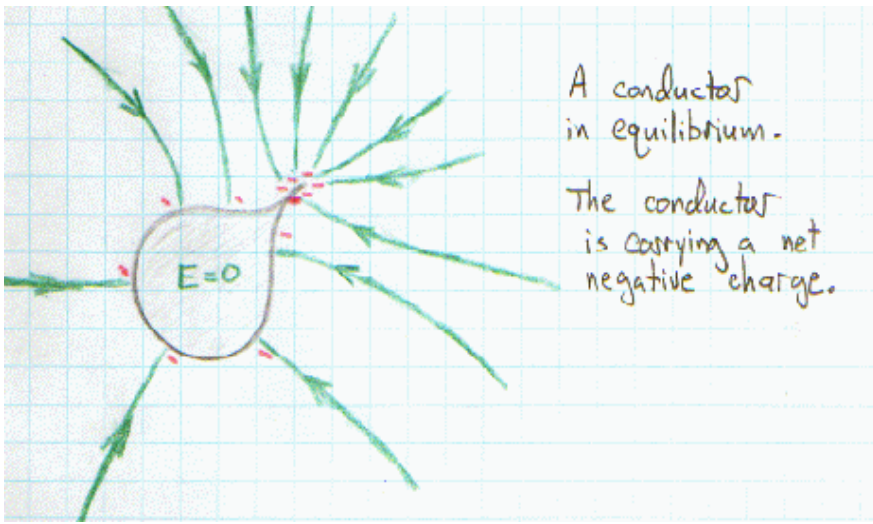 A conductor
in equilibrium.
The conductor
is carrying a net
negative charge.
E=0